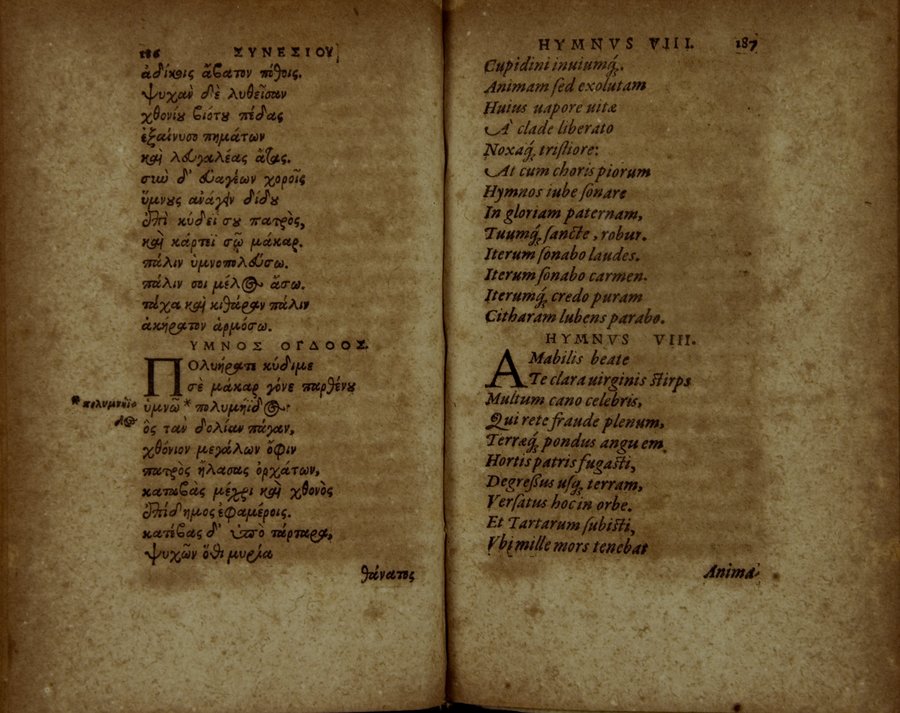 186 ΣΥΝΕΣΙΟΥ
ἀδίκοις ἄβατον πόθοις.
ψυχὰν δὲ λυθεῖσαν
χθονίου βιότου πέδας
ἐξαίνυσο πημάτων
καὶ λευγαλέας ἄτας.
σὺν δ' εὐαγέων χοροῖς
ὕμνους ἀνάγειν δίδου
ἐπὶ κύδεϊ σου πατρὸς,
καὶ κάρτεϊ σῷ μάκαρ.
πάλιν ὑμνοπολεύσω.
πάλιν σοι μέλος ἄσω.
τάχα καὶ κιθάραν πάλιν
ἀκήρατον ἁρμόσω.
ΥΜΝΟΣ ΟΓΔΟΟΣ.
ΠΟλυήρατε κύδιμε
σὲ μάκαρ γόνε παρθένου
* πολυμνήϊδος
ὑμνῶ * πολυμήϊδος·
ὃς τὰν δολίαν πάγαν,
χθόνιον μεγάλων ὄφιν
πατρὸς ἤλασας ὀρχάτων,
καταβὰς μέχρι καὶ χθονὸς
ἐπίδημος ἐφαμέροις.
κατέβας δ' ὑπὸ τάρταρα,
ψυχῶν ὅθι μυρία
θάνατος
HYMNVS VIII. 187
Cupidini inuiumq́;.
Animam sed exolutam
Huius uapore uitæ
A' clade liberato
Noxaq́; tristiore:
At cum choris piorum
Hymnos iube sonare
In gloriam paternam,
Tuumq́; sancte, robur.
Iterum sonabo laudes.
Iterum sonabo carmen.
Iterumq́; credo puram
Citharam lubens parabo.
HYMNVS VIII.
AMabilis beate
Te clara uirginis stirps
Multum cano celebris,
Qui rete fraude plenum,
Terræq́; pondus anguem
Hortis patris fugasti,
Degressus usq́; terram,
Versatus hoc in orbe.
Et Tartarum subisti,
Vbi mille mors tenebat
Anima